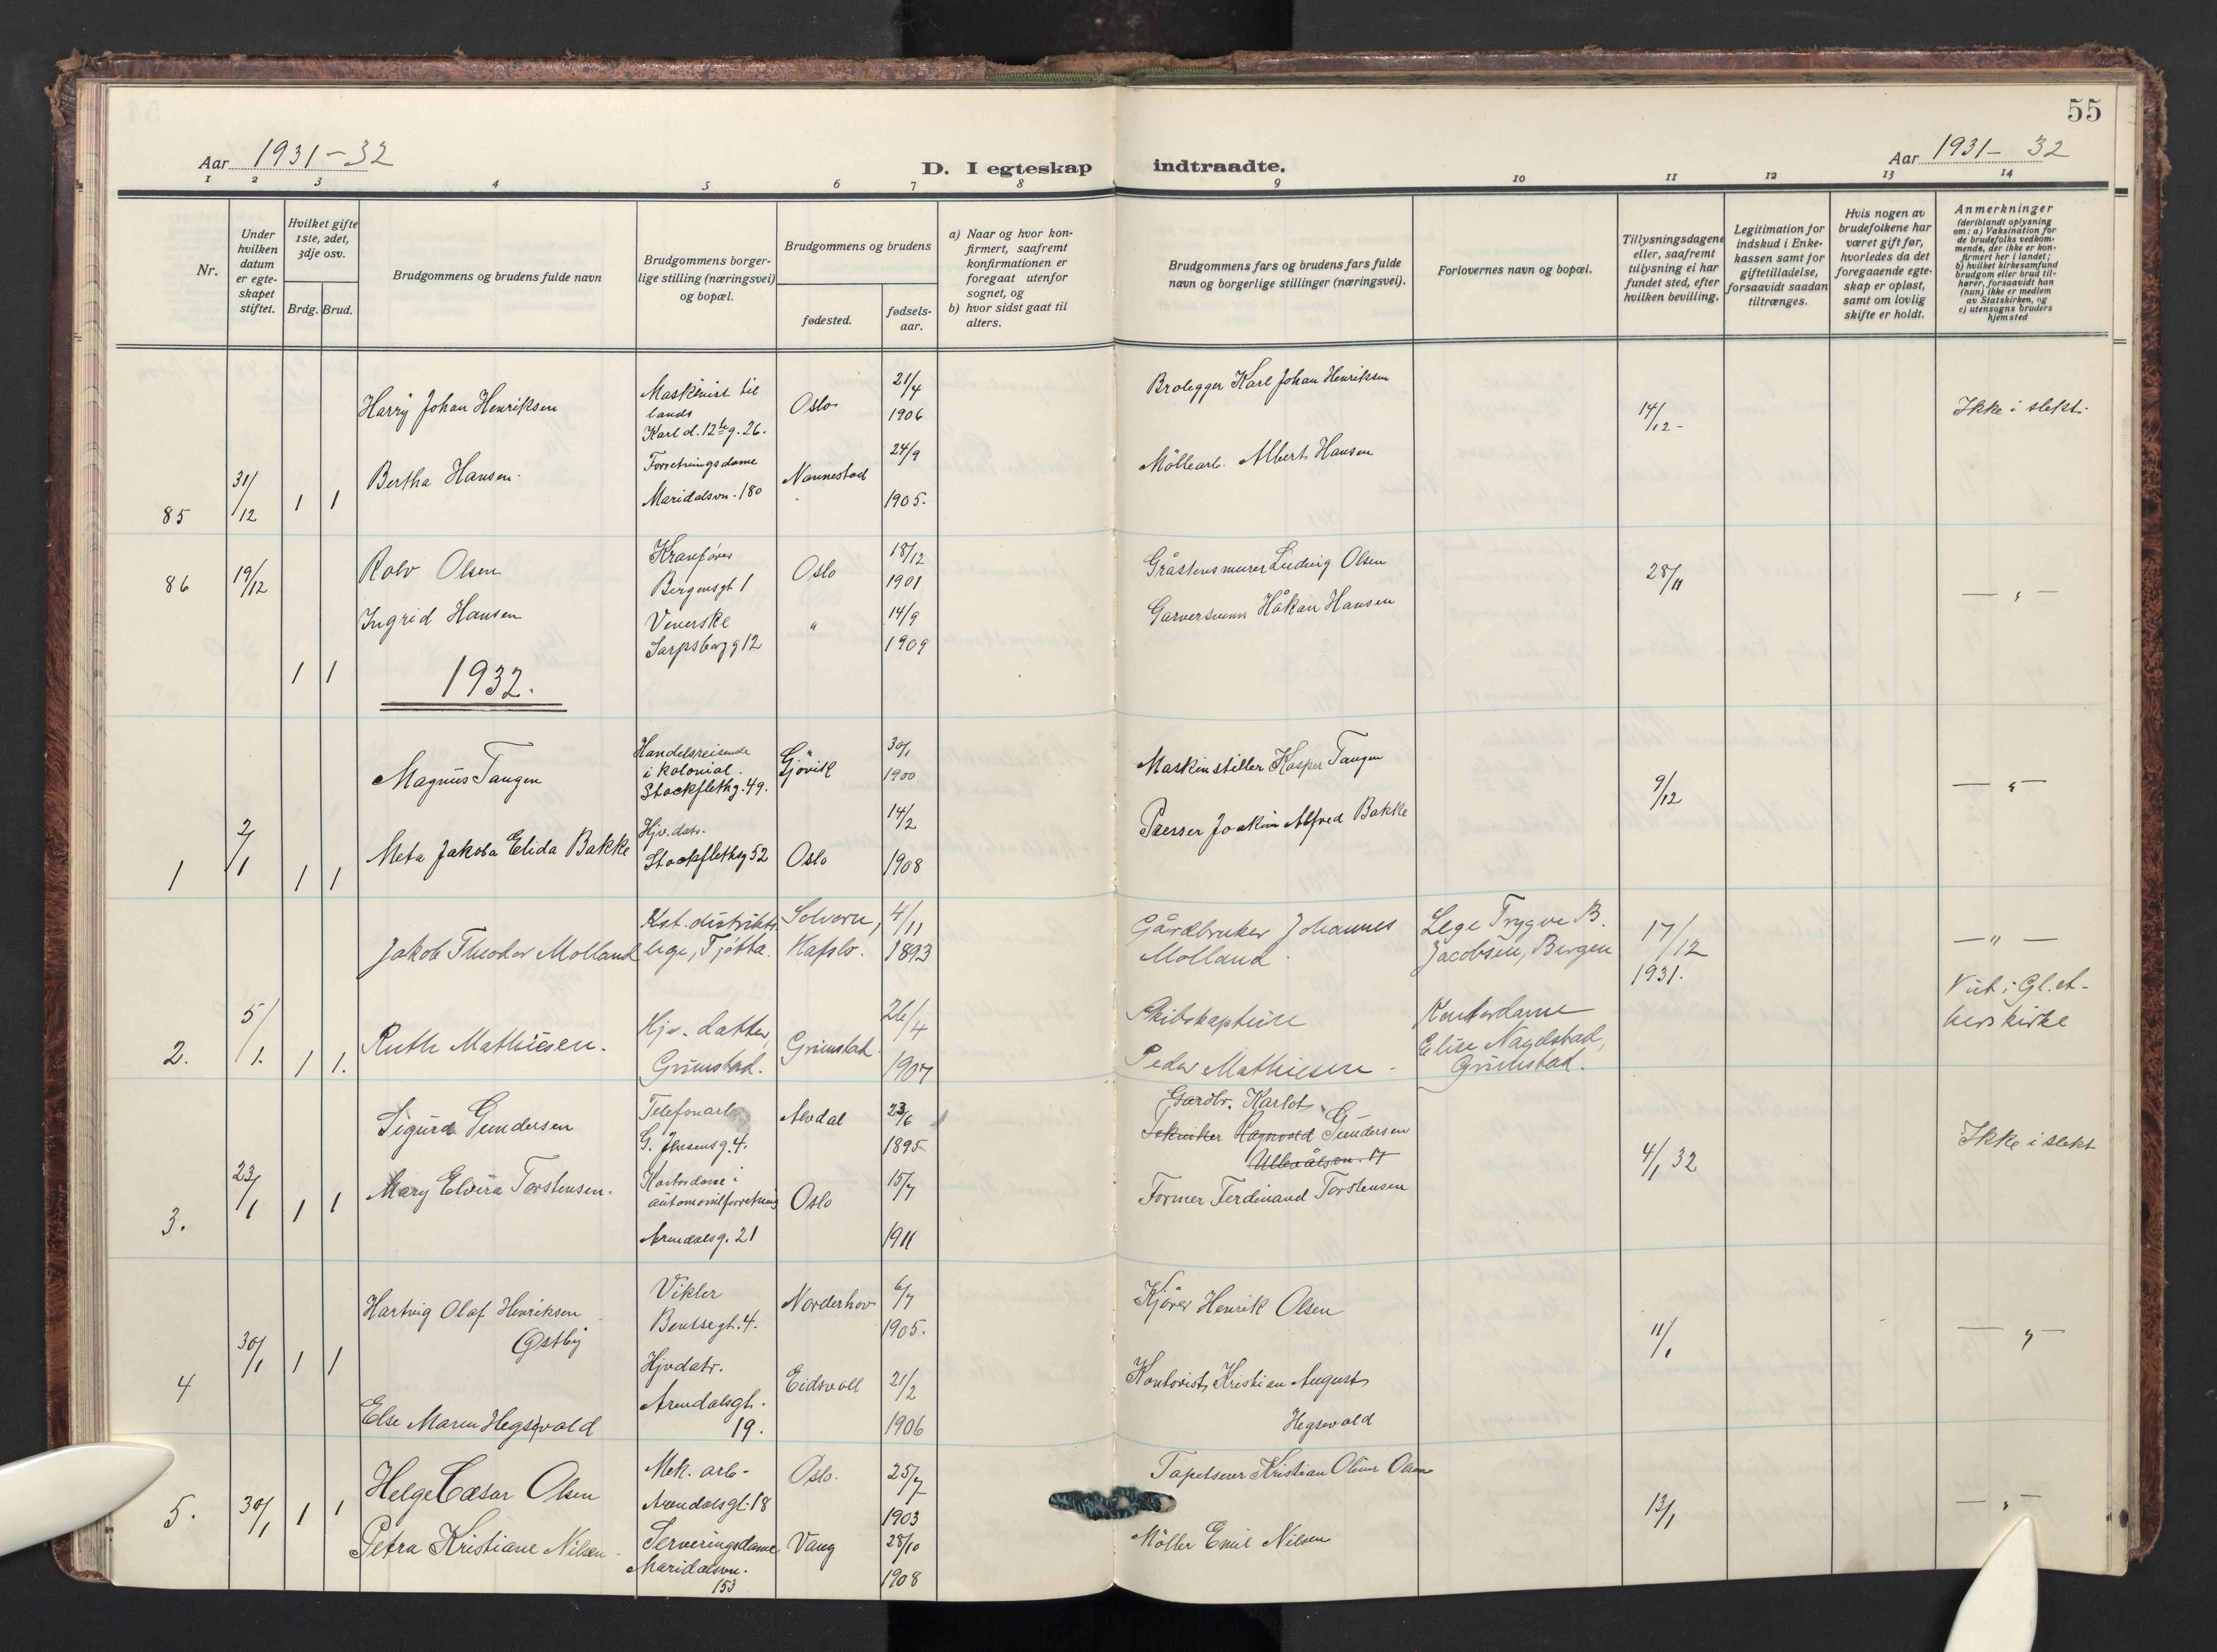 55
Aar 1931-32
D. I egteskap indtraadte.
Aar 1931-32
1 2 3 4 5 6 7 8 9 10 11 12 13 14
Nr.
Under hvilken datum er egte-skapet stiftet.
Hvilket gifte 1ste, 2det, 3dje osv.
Brdg. Brud.
Brudgommens og brudens fulde navn
Brudgommens borger-lige stilling (næringsvei) og bopæl.
Brudgommens og brudens
fødested.
fødsels-aar.
a) Naar og hvor kon-firmert, saafremt konfirmationen er foregaat utenfor sognet, og
b) hvor sidst gaat til alters.
Brudgommens fars og brudens fars fulde navn og borgerlige stillinger (næringsvei).
Forlovernes navn og bopæl.
Tillysningsdagene eller, saafremt tillysning ei har fundet sted, efter hvilken bevilling.
Legitimation for indskud i Enke-kassen samt for giftetilladelse, forsaavidt saadan tiltrænges.
Hvis nogen av brudefolkene har været gift før, hvorledes da det foregaaende egte-skap er opløst, samt om lovlig skifte er holdt.
Anmerkninger
(deriblandt oplysning om: a) Vaksination for de brudefolks vedkom-mende, der ikke er kon-firmert her i landet;
b) hvilket kirkesamfund brudgom eller brud til-hører, forsaavidt han (hun) ikke er medlem av Statskirken, og
c) utensogns bruders hjemsted
85 31/12 1 1
Harry Johan Henriksen
Maskinist til lands
Karl d. 12te g. 26.
Oslo
21/4 1906
Brolegger Karl Johan Henriksen
14/12-
Ikke i slekt.
Bertha Hansen.
Forretningsdame
Maridalsvn. 180
Nannestad
24/9 1905.
Møllearb. Albert Hansen
86 19/12 1 1
Rolv Olsen
Kranfører
Bergensgt 1
Oslo
18/12 1901
Gråstensmurer Ludvig Olsen
28/11
— " —
Ingrid Hansen
Veverske
Sarpsborgg 12
"
14/9 1909
Garversvenn Håkan Hansen
1932.
1 2/1 1 1
Magnus Tangen
Handelsreisende
i kolonial.
Stockflethg. 49.
Gjøvik
30/1 1900
Maskinstiller Kasper Tangen
9/12
— " —
Meta Jakoba Elida Bakke
Hjv. datr.
Stockflethsg 52
Oslo
14/2 1908
Presser Joakim Alfred Bakke
2. 5/1. 1 1.
Jakob Theodor Molland
Kst. distrikts
lege, Tjøtta.
Solvorn,
Hafslo.
4/11 1893
Gårdbruker Johannes
Molland.
Lege Trygve B.
Jacobsen, Bergen
17/12
1931.
— " —
Viet i Gl. A-
kers kirke
Ruth Mathiesen.
Hjv. datter,
Grimstad.
Grimstad.
26/4 1907
Skibskaptein
Peder Mathiesen -
Kontordame
Elise Nagelstad,
Grimstad.
3. 23/1 1 1
Sigurd Gundersen
Telefonarb
G. Jensensg. 4.
Alvdal
23/6 1895
Gardbr. Karlot G-
Tekniker Ragnvald Gundersen
Ullevålsvn. 17
4/1 32
Ikke i slekt
Mary Elvira Torstensen.
Kontordame i
automobilforretning
Arendalsg. 21
Oslo
15/7 1911
Former Ferdinand Torstensen
4 30/1 1 1
Hartvig Olaf Henriksen
Østby
Vikler
Bentsegt. 4.
Norderhov
6/7 1905.
Kjører Henrik Olsen
11/1
— " —
Else Maren Hegsvold
Hjvdatr.
Arendalsgt.
19.
Eidsvoll
21/2 1906
Kontorist Kristian August
Hegsvold
5. 30/1 1 1
Helge Cæsar Olsen
Mek. arb-
Arendalsgt. 18
Oslo.
25/7 1903
Tapetserer Kristian Olsen
13/1
— " —
Petra Kristiane Nilsen.
Serveringsdame
Maridalsvn.
153
Vang
28/10 1908
Møller Emil Nilsen